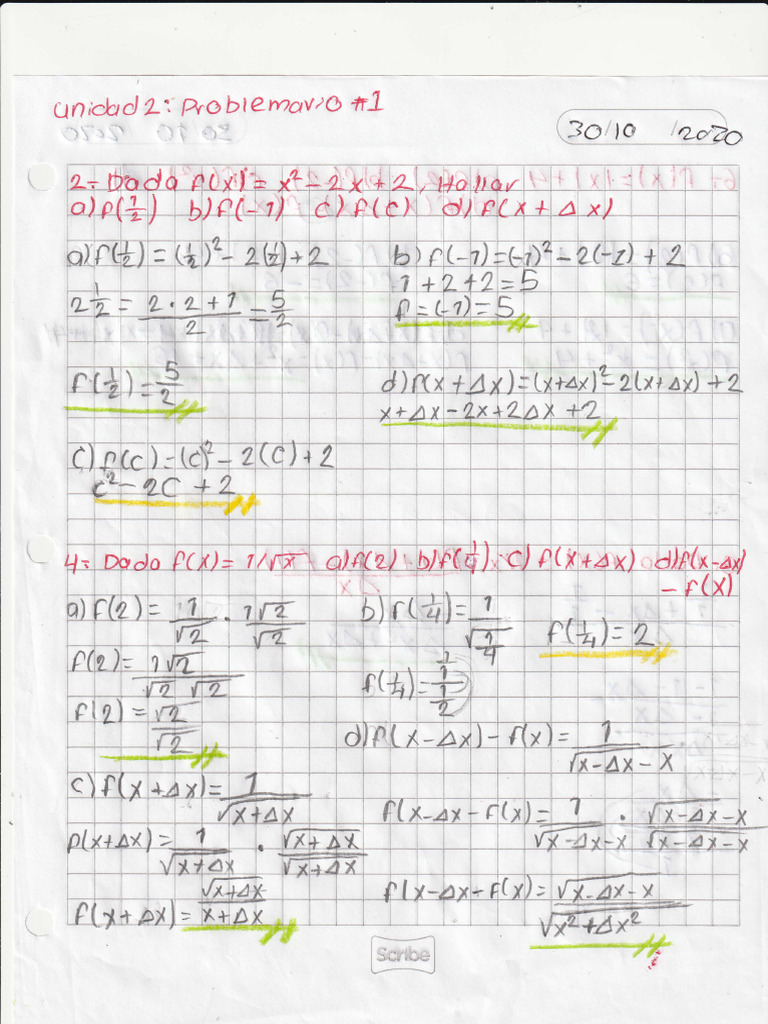 Unidad 2: Problemario #1
30/10/2020
2- Dada f(x) = x² - 2x + 2, Hallar
a) f(1/2) b) f(-1) c) f(c) d) f(x + Δx)
a) f(1/2) = (1/2)² - 2(1/2) + 2
2 1/2 = (2 · 2 + 1)/2 = 5/2
f(1/2) = 5/2
b) f(-1) = (-1)² - 2(-1) + 2
1 + 2 + 2 = 5
f = (-1) = 5
d) f(x + Δx) = (x + Δx)² - 2(x + Δx) + 2
x + Δx - 2x + 2Δx + 2
c) f(c) = (c)² - 2(c) + 2
c² - 2c + 2
4- Dada f(x) = 1/√x a) f(2) b) f(1/4) c) f(x + Δx) d) f(x - Δx)
- f(x)
a) f(2) = 1/√2 · 1√2/√2
f(2) = 1√2/√2 √2
f(2) = √2/√2
b) f(1/4) = 1/√(1/4)
f(1/4) = (1/1)/(1/2)
f(1/4) = 2
c) f(x + Δx) = 1/√(x + Δx)
f(x + Δx) = 1/√(x + Δx) · √(x + Δx)/√(x + Δx)
f(x + Δx) = √(x + Δx)/x + Δx
d) f(x - Δx) - f(x) = 1/√(x - Δx - x)
f(x - Δx - f(x) = 1/√(x - Δx - x) · √(x - Δx - x)/√(x - Δx - x)
f(x - Δx - f(x) = √(x - Δx - x)/√(x² + Δx²)
Scribe